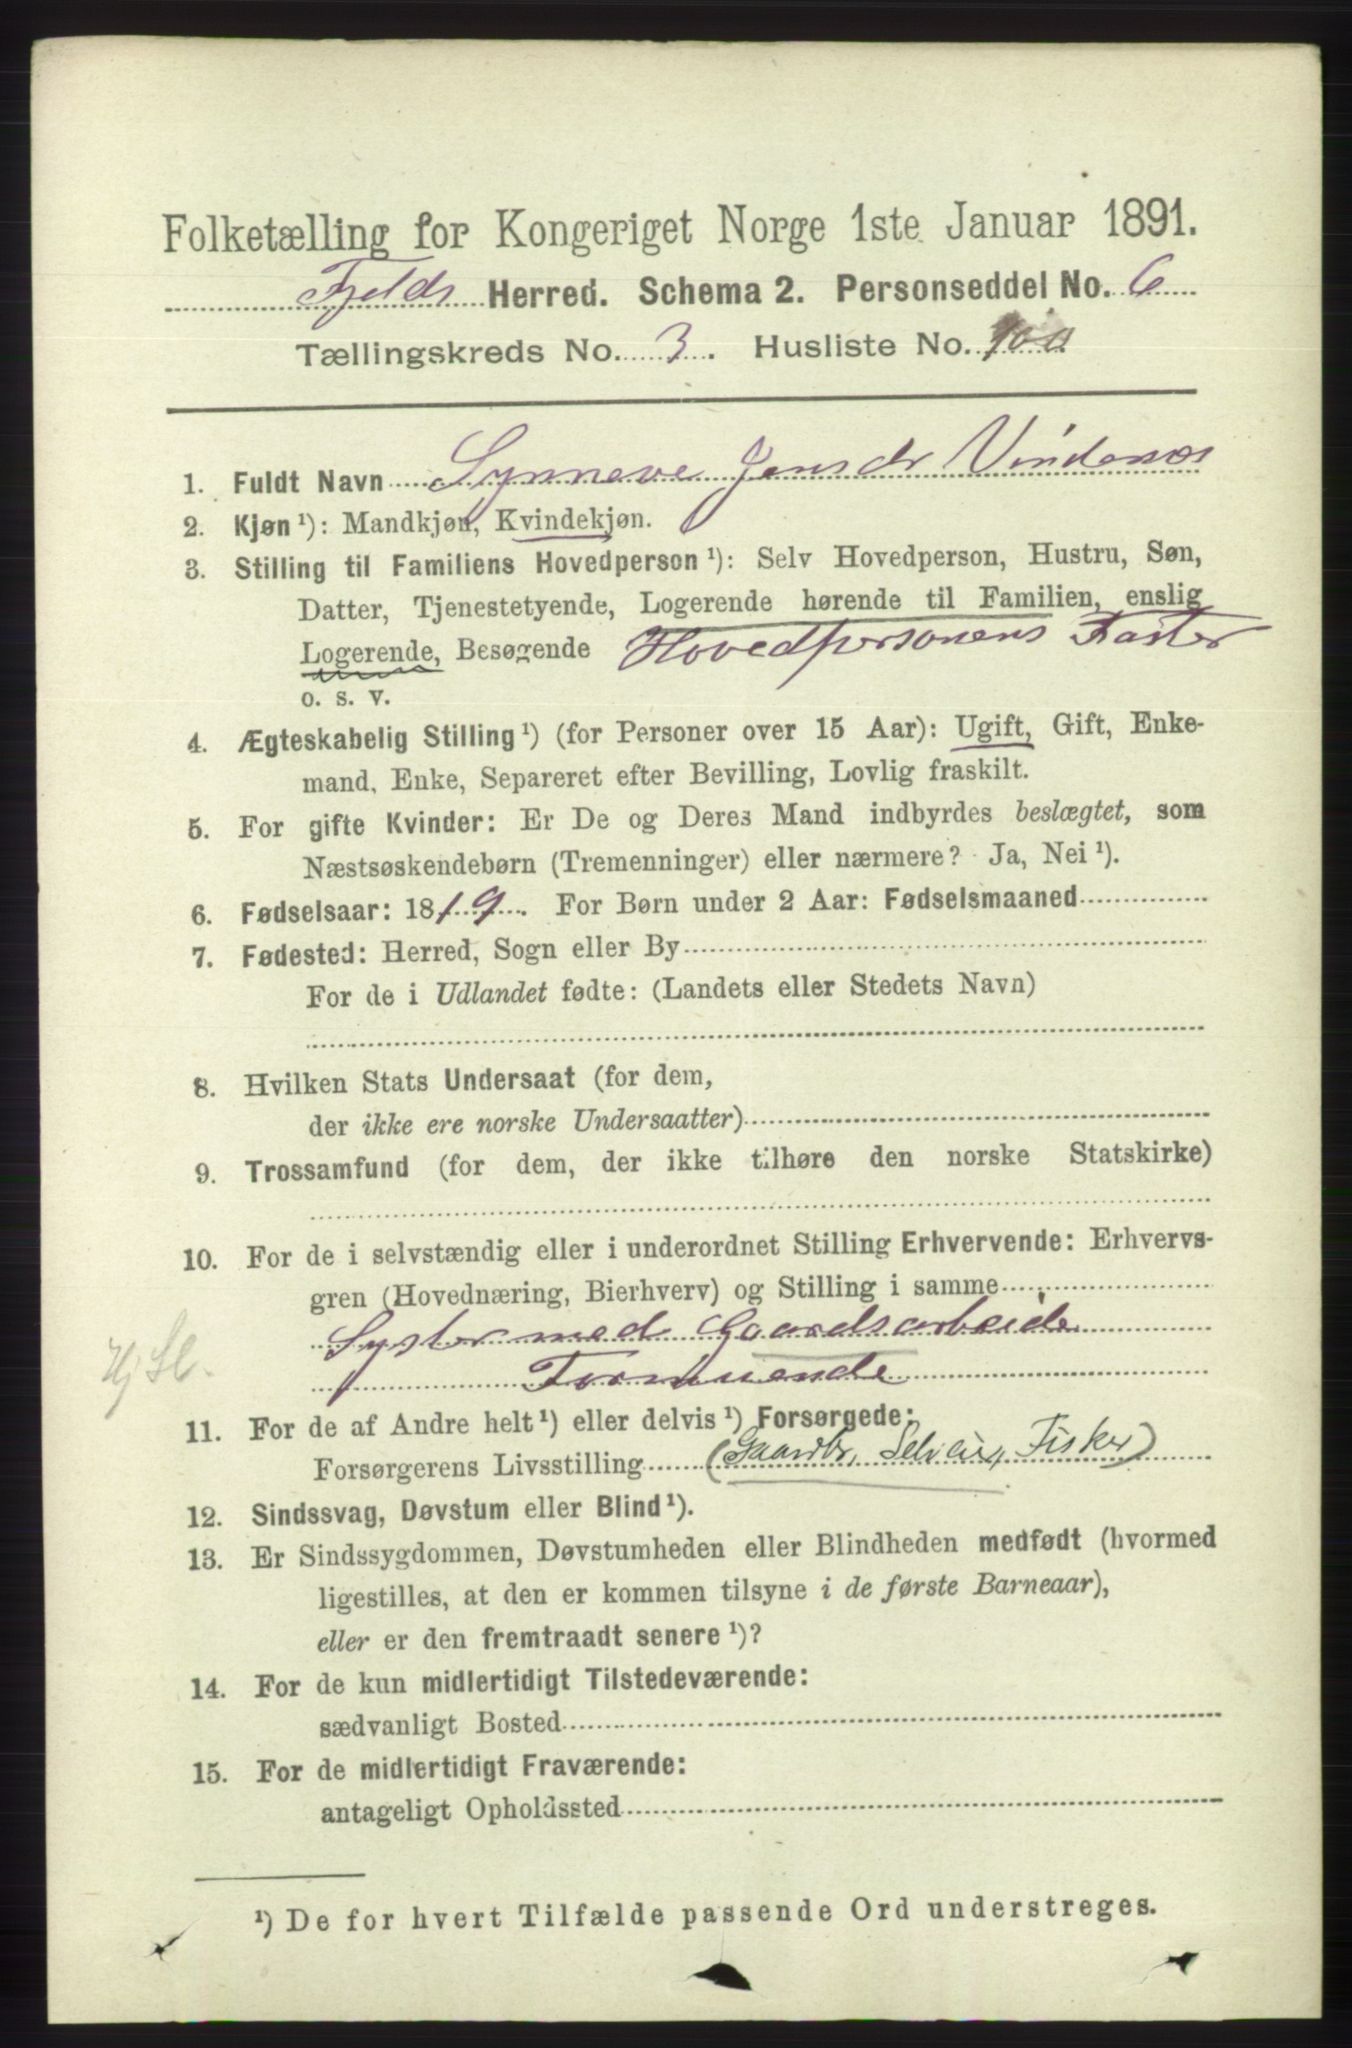 Folketælling for Kongeriget Norge 1ste Januar 1891.
Fjelds Herred. Schema 2. Personseddel No. 6
Tællingskreds No. 3. Husliste No. 100
1. Fuldt Navn Synneve Jensdr Vindenæs
2. Kjøn ¹): Mandkjøn, Kvindekjøn.
3. Stilling til Familiens Hovedperson ¹): Selv Hovedperson, Hustru, Søn,
Datter, Tjenestetyende, Logerende hørende til Familien, enslig
Logerende, Besøgende Hovedpersonens Faster
o. s. v.
4. Ægteskabelig Stilling ¹) (for Personer over 15 Aar): Ugift, Gift, Enke-
mand, Enke, Separeret efter Bevilling, Lovlig fraskilt.
5. For gifte Kvinder: Er De og Deres Mand indbyrdes beslægtet, som
Næstsøskendebørn (Tremenninger) eller nærmere? Ja, Nei ¹).
6. Fødselsaar: 1819. For Børn under 2 Aar: Fødselsmaaned
7. Fødested: Herred, Sogn eller By
For de i Udlandet fødte: (Landets eller Stedets Navn)
8. Hvilken Stats Undersaat (for dem,
der ikke ere norske Undersaatter)
9. Trossamfund (for dem, der ikke tilhøre den norske Statskirke)
10. For de i selvstændig eller i underordnet Stilling Erhvervende: Erhvervs-
gren (Hovednæring, Bierhverv) og Stilling i samme
Syster med Gaardsarbeide
Hj Sl.
11. For de af Andre helt ¹) eller delvis ¹) Forsørgede:
Forsørgerens Livsstilling (Gaardbr, Seleier, Fisker)
12. Sindssvag, Døvstum eller Blind ¹).
13. Er Sindssygdommen, Døvstumheden eller Blindheden medfødt (hvormed
ligestilles, at den er kommen tilsyne i de første Barneaar),
eller er den fremtraadt senere ¹)?
14. For de kun midlertidigt Tilstedeværende:
sædvanligt Bosted
15. For de midlertidigt Fraværende:
antageligt Opholdssted
¹) De for hvert Tilfælde passende Ord understreges.